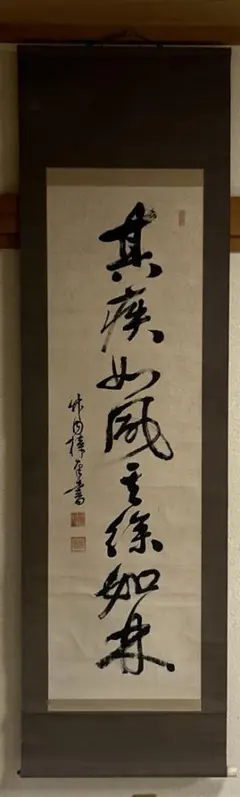 其疾如風其徐如林